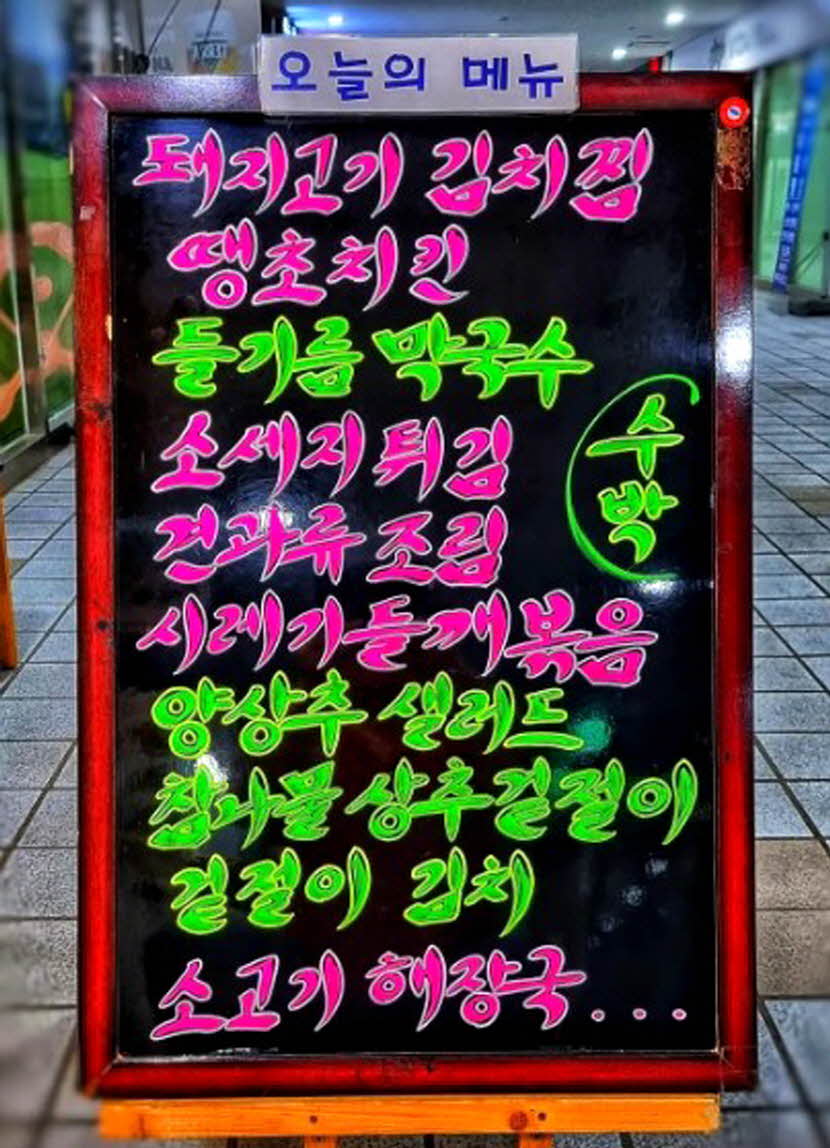 오늘의 메뉴
돼지고기 김치찜
땡초치킨
들기름 막국수
소세지 튀김
수박
견과류 조림
시레기들깨볶음
양상추 샐러드
참나물 상추겉절이
겉절이 김치
소고기 해장국...